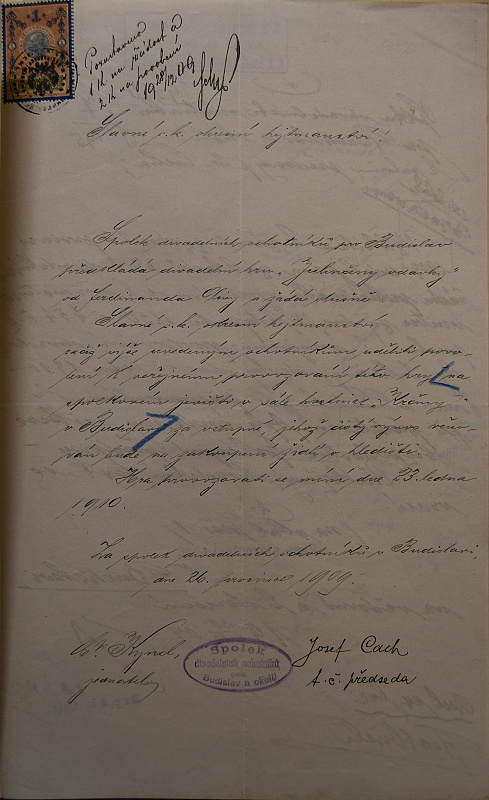 1
Poznamenáno
1 K na žádost a
2 K na povolení
19 28/12 09
Slavné c. k. okresní hejtmanství!
Spolek divadelních ochotníků pro Budislav
předkládá divadelní hru „Julinčiny vdavky"
od Ferdinanda Olivy a žádá slušně:
Slavné c. k. okresní hejtmanství
račiž výše uvedeným ochotníkům uděliti povo-
lení k veřejnému provozování této hry na
spolkovém jevišti v sále hostince „Krčmy"
v Budislavi za vstupné, jehož čistý výnos věno-
ván bude na zakoupení židlí v hledišti.
Hra provozovati se míní dne 23. ledna
1910.
Za spolek divadelních ochotníků v Budislavi,
dne 26. prosince 1909.
Kyncl,
jednatel
Spolek
divadelních ochotníků
pro
Budislav a okolí
Josef Cach
t. č. předseda